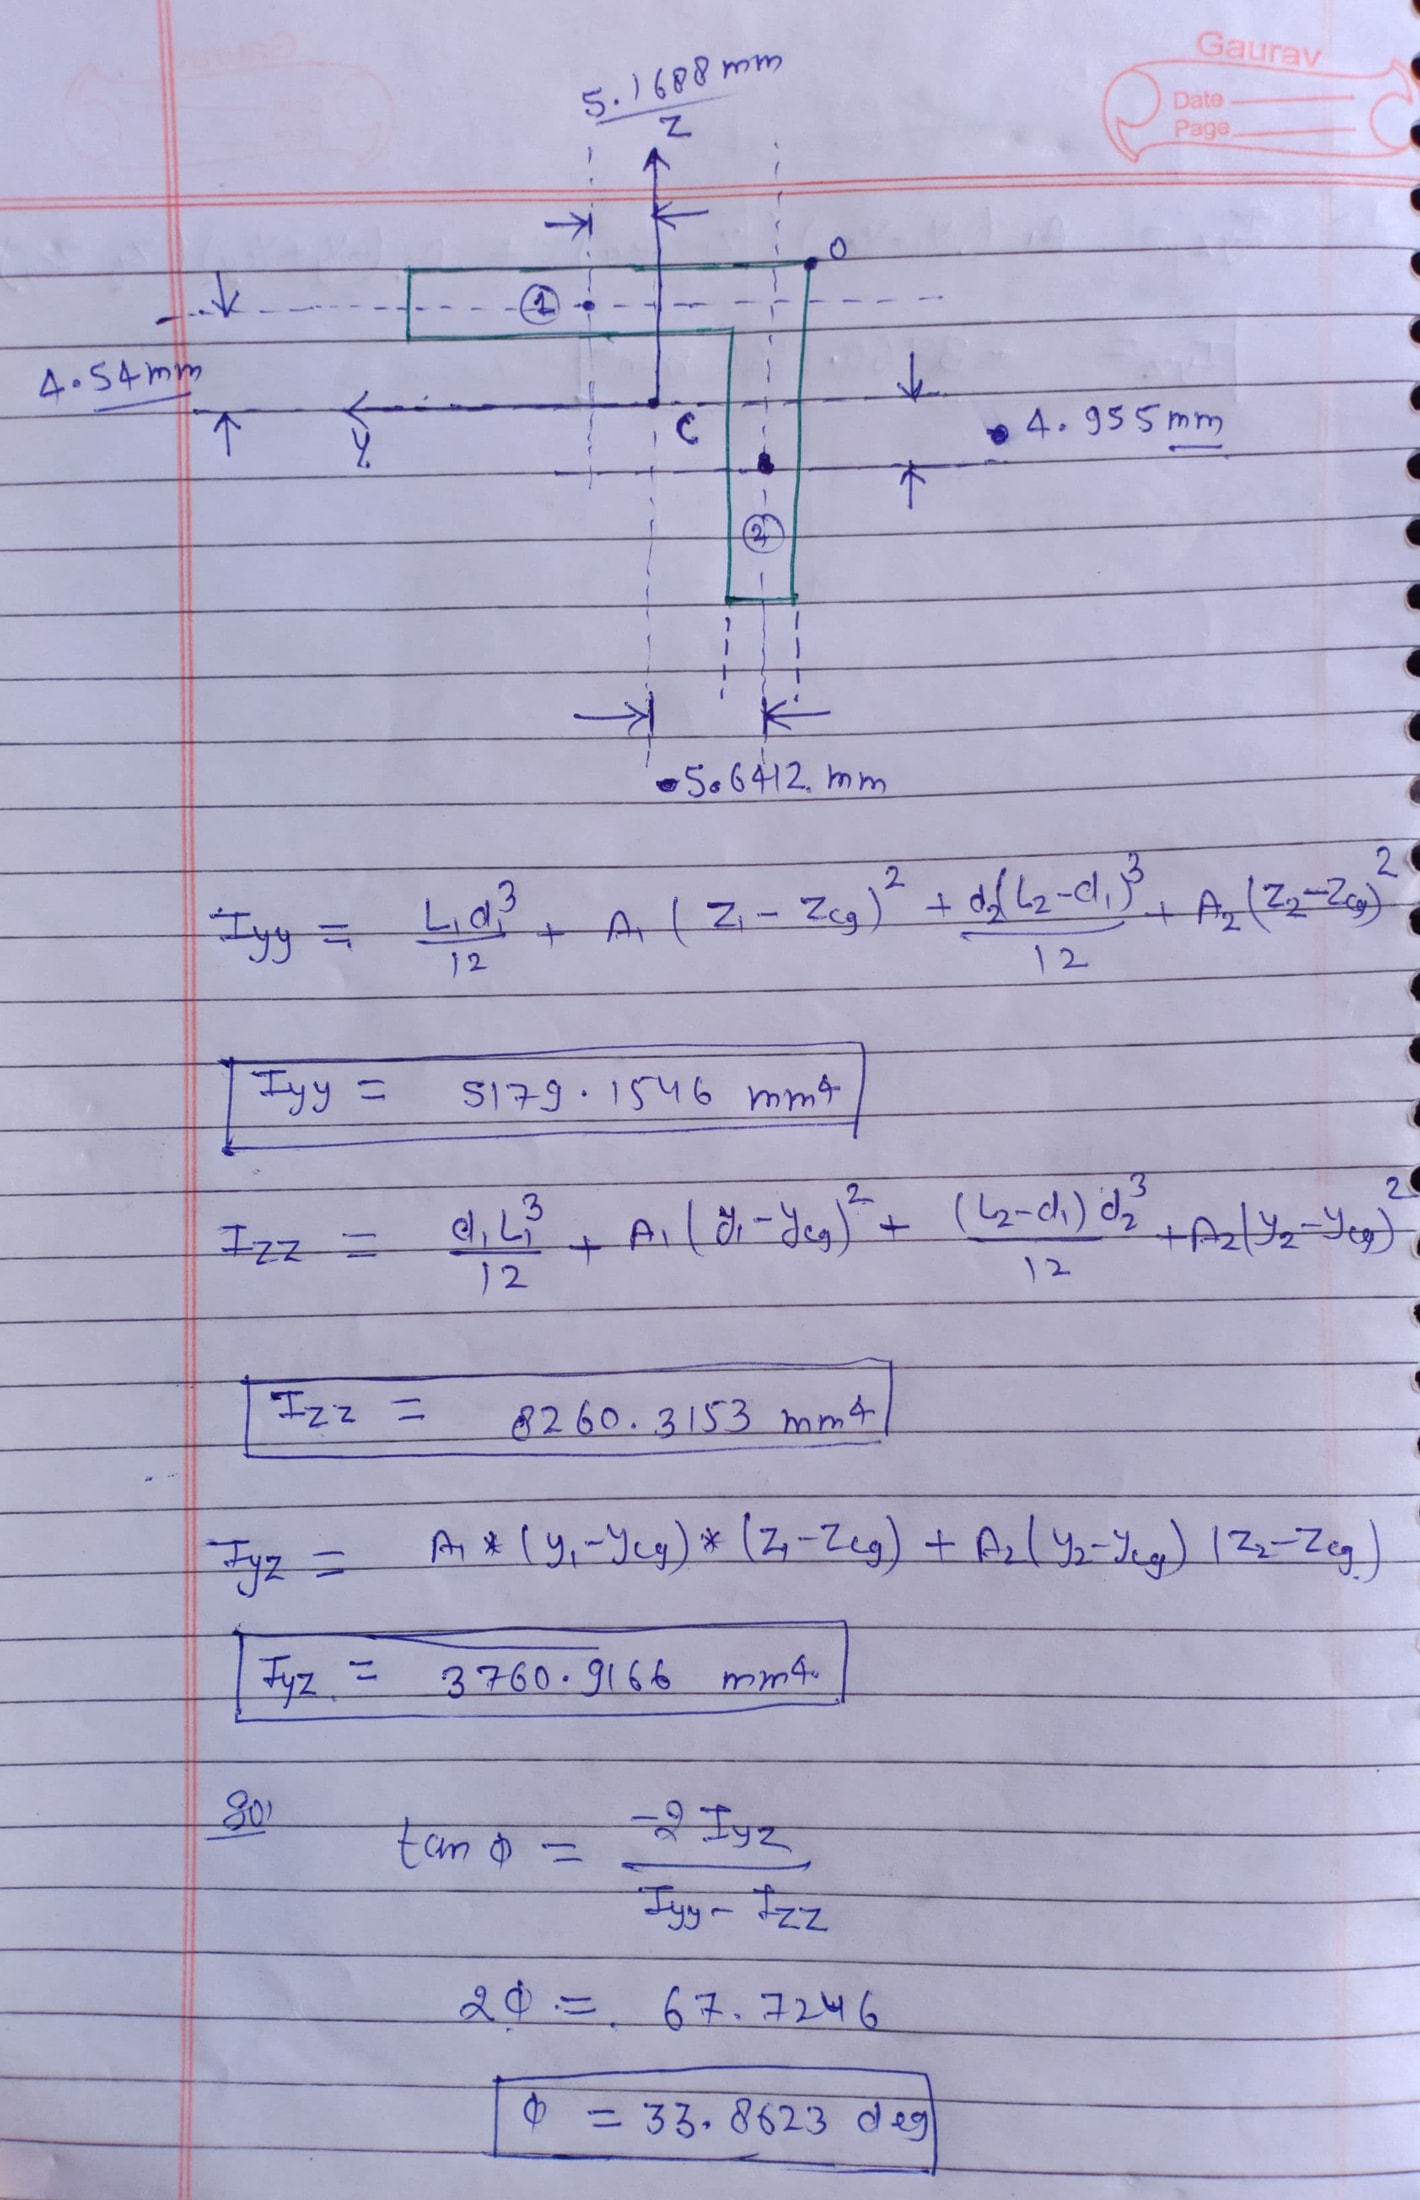 Gaurav
Date
Page
5.1688 mm
Z
O
1
4.54 mm
Y
C
4.955 mm
2
5.6412 mm
Iyy = L₁d₁³/12 + A₁ (Z₁ - Zcg)² + d₂(L₂-d₁)³/12 + A₂ (Z₂-Zcg)²
Iyy = 5179.1546 mm4
Izz = d₁L₁³/12 + A₁ (y₁-ycg)² + (L₂-d₁) d₂³/12 + A₂(y₂-ycg)²
Izz = 8260.3153 mm4
Iyz = A₁ * (y₁-ycg) * (Z₁-Zcg) + A₂(y₂-ycg) (Z₂-Zcg)
Iyz = 3760.9166 mm4
So,
tan ϕ = -2 Iyz / Iyy - Izz
2ϕ = 67.7246
ϕ = 33.8623 deg